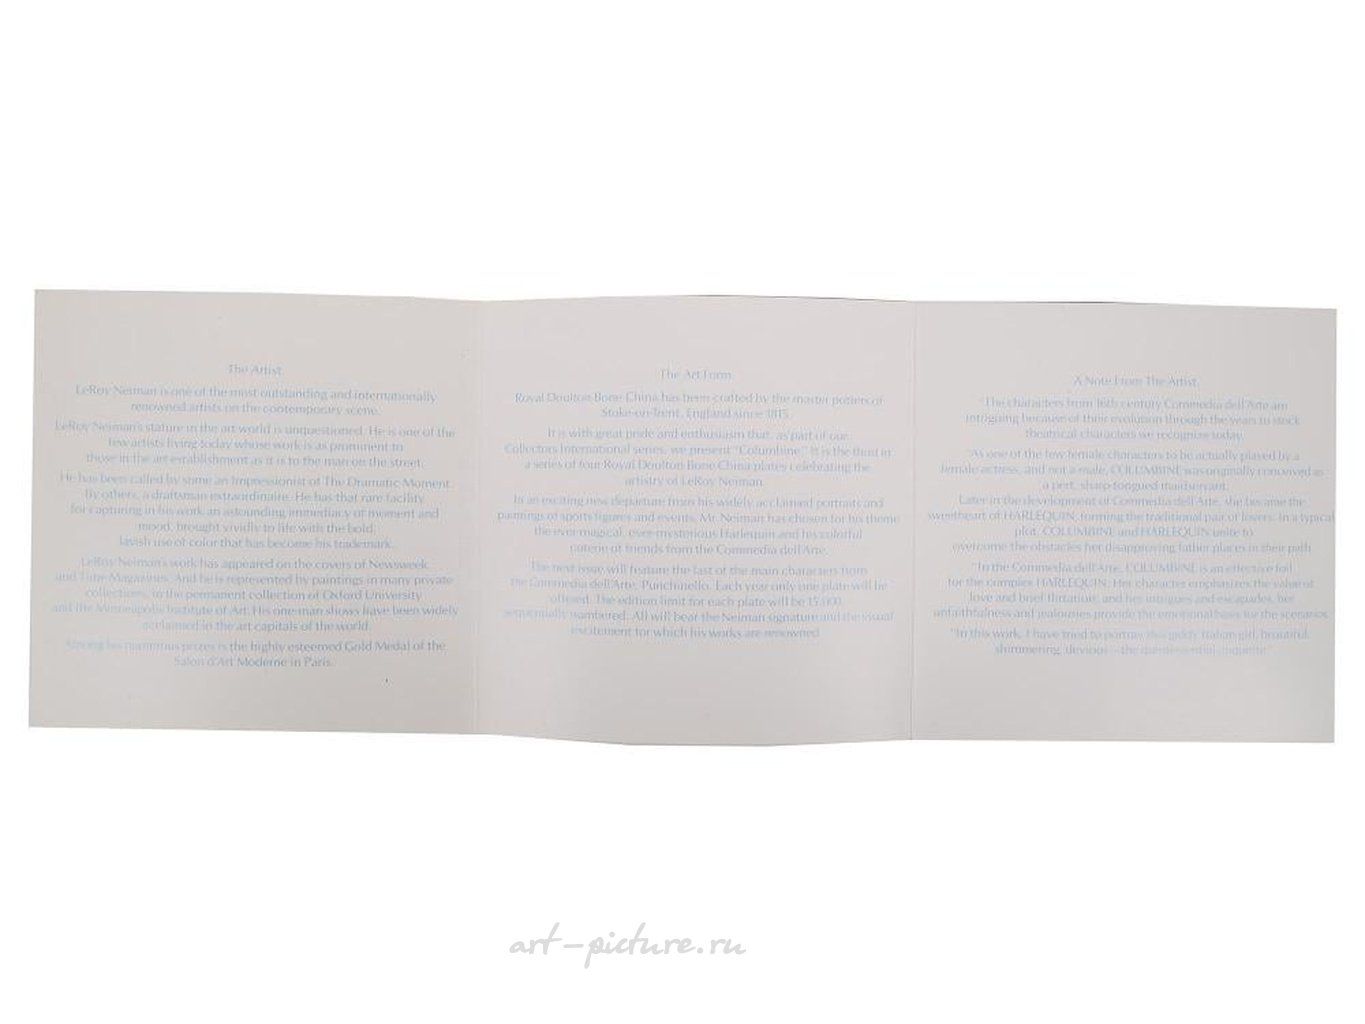 The Artist
LeRoy Neiman is one of the most outstanding and internationally
renowned artists on the contemporary scene.
LeRoy Neiman's stature in the art world is unquestioned. He is one of the
few artists living today whose work is as prominent to
those in the art establishment as it is to the man on the street.
He has been called by some an Impressionist of The Dramatic Moment.
By others, a draftsman extraordinaire. He has that rare facility
for capturing in his work an astounding immediacy of moment and
mood, brought vividly to life with the bold,
lavish use of color that has become his trademark.
LeRoy Neiman's work has appeared on the covers of Newsweek
and Time Magazines. And he is represented by paintings in many private
collections, in the permanent collection of Oxford University
and the Minneapolis Institute of Art. His one-man shows have been widely
acclaimed in the art capitals of the world.
Among his numerous prizes is the highly esteemed Gold Medal of the
Salon d'Art Moderne in Paris.
The Art Form
Royal Doulton Bone China has been crafted by the master potters of
Stoke-on-Trent, England since 1815.
It is with great pride and enthusiasm that, as part of our
Collectors International series, we present "Columbine." It is the third in
a series of four Royal Doulton Bone China plates celebrating the
artistry of LeRoy Neiman.
In an exciting new departure from his widely acclaimed portraits and
paintings of sports figures and events, Mr. Neiman has chosen for his theme
the ever-magical, ever-mysterious Harlequin and his colorful
coterie of friends from the Commedia dell'Arte.
The next issue will feature the last of the main characters from
the Commedia dell'Arte, Punchinello. Each year only one plate will be
offered. The edition limit for each plate will be 15,000,
sequentially numbered. All will bear the Neiman signature and the visual
excitement for which his works are renowned.
A Note From The Artist
"The characters from 16th century Commedia dell'Arte are
intriguing because of their evolution through the years to stock
theatrical characters we recognize today.
"As one of the few female characters to be actually played by a
female actress, and not a male, COLUMBINE was originally conceived as
a pert, sharp-tongued maidservant.
Later in the development of Commedia dell'Arte, she became the
sweetheart of HARLEQUIN, forming the traditional pair of lovers. In a typical
plot, COLUMBINE and HARLEQUIN unite to
overcome the obstacles her disapproving father places in their path.
"In the Commedia dell'Arte, COLUMBINE is an effective foil
for the complex HARLEQUIN. Her character emphasizes the value of
love and brief flirtation, and her intrigues and escapades, her
unfaithfulness and jealousies provide the emotional basis for the scenarios.
"In this work, I have tried to portray this giddy Italian girl, beautiful,
shimmering, devious—the quintessential coquette."
art-picture.ru